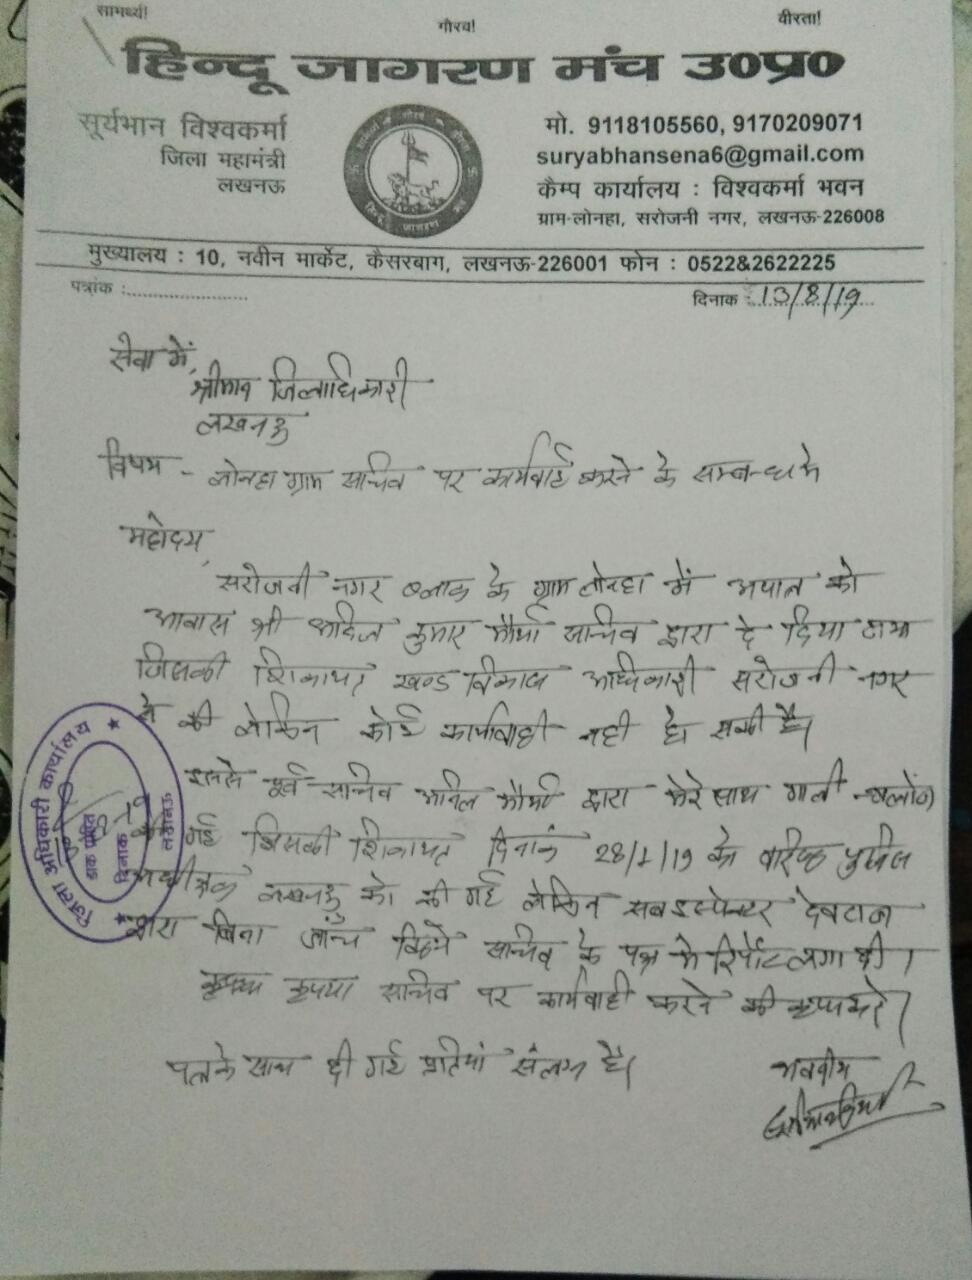 सामर्थ्य!
गौरव!
वीरता!
हिन्दू जागरण मंच उ०प्र०
सूर्यभान विश्वकर्मा
जिला महामंत्री
लखनऊ
मो. 9118105560, 9170209071
suryabhansena6@gmail.com
कैम्प कार्यालय : विश्वकर्मा भवन
ग्राम-लोनहा, सरोजनी नगर, लखनऊ-226008
मुख्यालय : 10, नवीन मार्केट, कैसरबाग, लखनऊ-226001 फोन : 0522&2622225
पत्रांक :
दिनाक : 13/8/19
सेवा में,
श्रीमान जिलाधिकारी
लखनऊ
विषय - लोनहा ग्राम सचिव पर कार्यवाई करने के सम्बन्ध के
महोदय,
सरोजनी नगर ब्लाक के ग्राम लोनहा में अपात्र को
आवास श्री कुमार मौर्या सचिव द्वारा दे दिया
जिसकी शिकायत खण्ड विकास अधिकारी सरोजनी नगर
से की लेकिन कोई कार्यवाही नही हो सकी है।
इससे पूर्व सचिव अनिल मौर्या द्वारा मेरे साथ गाली
की गई जिसकी शिकायत दिनांक के वरिष्ठ पुलिस
अधीक्षक लखनऊ को की गई लेकिन सबइंस्पेक्टर
द्वारा बिना जांच किये सचिव के पक्ष मे रिर्पोट लगा दी।
कृपया सचिव पर कार्यवाही करने की कृपा करे।
पत्र के साथ दी गई प्रतियां संलग्न है।
भवदीय
जिला अधिकारी कार्यालय
डाक प्राप्ति
दिनांक
लखनऊ